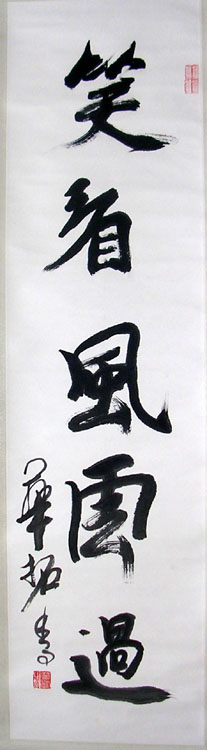 笑看風雲過
華拓書